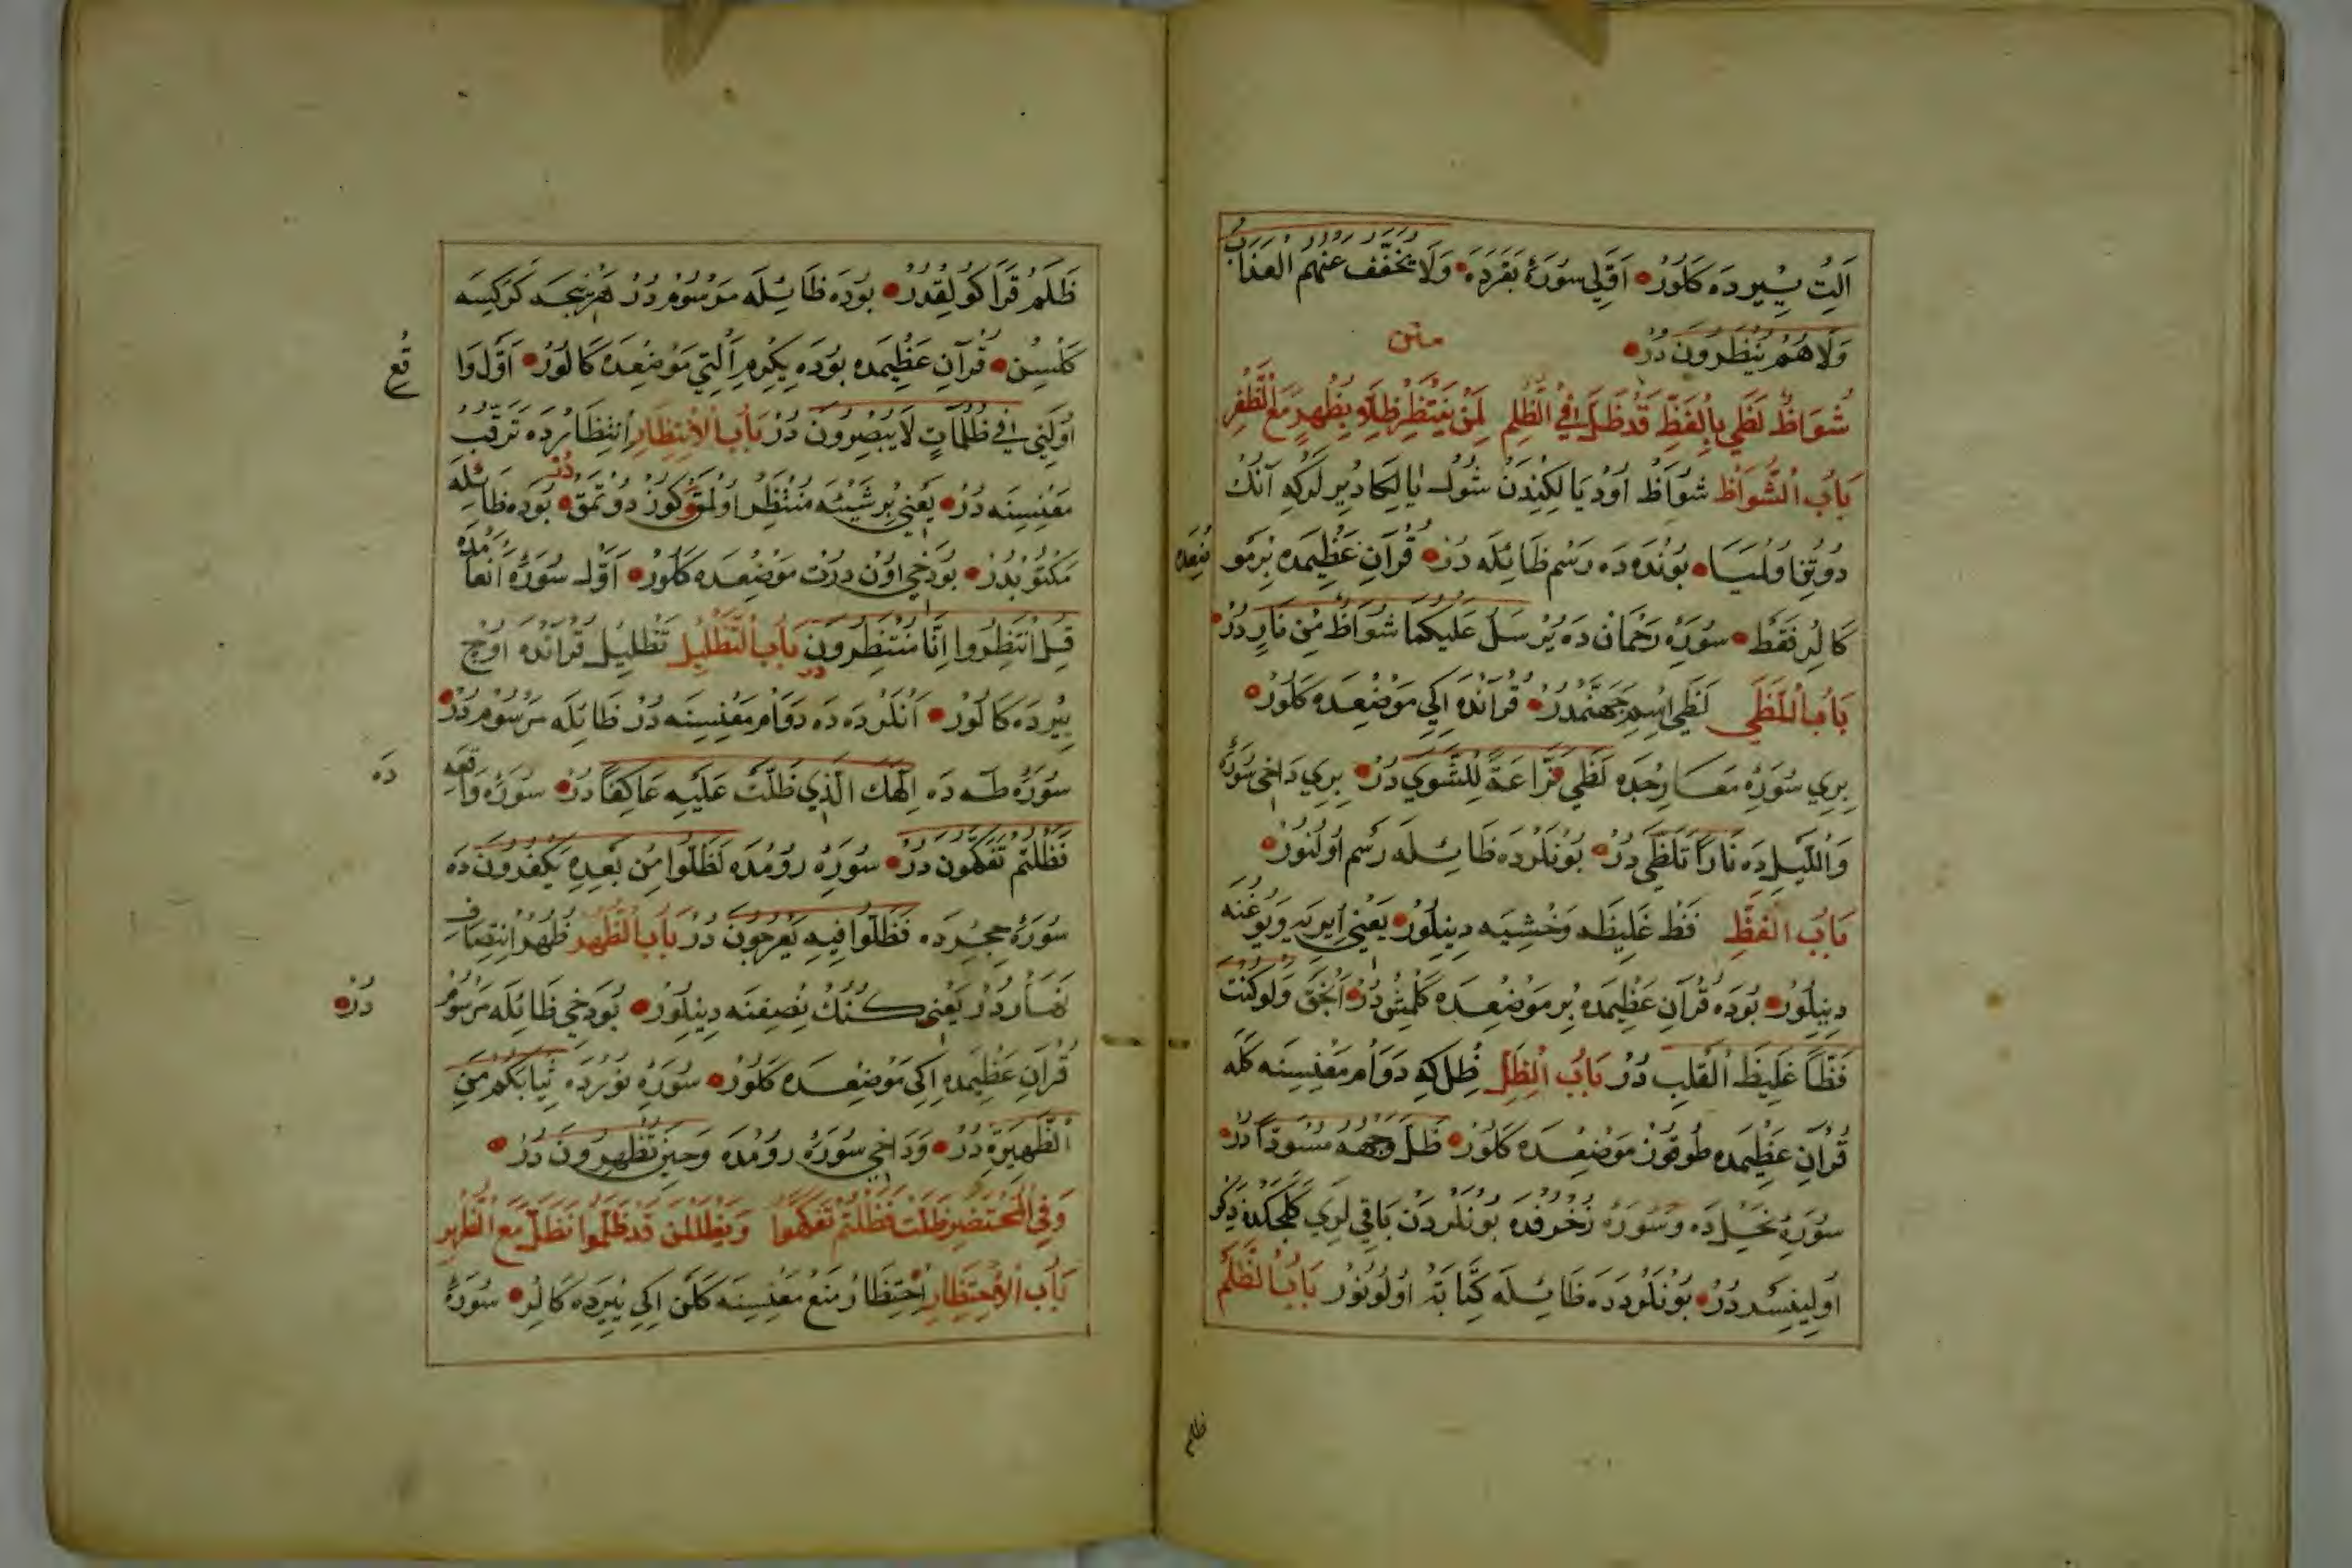 اَلتِ ييرده كلور اوّلي سورۀ بقرده ولا يخفّف عنهم العذاب
ولا هم ينظرون در
متن
شواظ لظى بالفظّ قد ظلّ في الظلم لمن ينتظر ظلّه بظهر مع الظفر
باب الشواظ شواظ اود يالكيندن شول يالكا ديرلركه آنك
دوتني اولميا بونده ده رسم ظائله در قرآن عظيمده بر مو
ضعده
كالر فقط سورۀ رحمان ده يرسل عليكما شواظ من نار در
باب اللظى لظى اسم جهنّمدر قرانده اكي موضعده كلور
بري سورۀ معارجده لظى نزّاعة للشّوى در بري داخي سورۀ
والليل ده نارا تلظّى در بونلرده ظائله رسم اولنور
باب الفظّ فظ غليظه وخشيه دينلور يعني ايريه ويوغنه
دينلور بوده قرآن عظيمده بر موضعده كلمش در انجق ولو كنت
فظّا غليظ القلب در باب الظلّ ظل كه دوام معنيسنه كله
قرآن عظيمده طوقوز موضعده كلور ظلّ وجهه مسودّا در
سورۀ نحل ده وسورۀ زخرفده بونلردن باقي لري كلجكده ذكر
اولينسدر در بونلرده ده ظائله كتابة اولونور باب الظلم
ظلم
ظلم قراكولقدر بوده ظائله مرسومدر هر نيجه كركسه
كلسن قرآن عظيمده بوده يكرم التي موضعده كالور اوّل وا
قع
اولني في ظلمات لا يبصرون در باب الانتظار انتظارده ترقّب
معنيسنه در يعني بر شيئه منتظر اولمق كوز دوتمق در بوده ظائله
مكتوبدر بودخي اون درت موضعده كلور اوّل سورۀ انعامده
قل انتظروا انّا منتظرون در باب التظليل تظليل قرانده اوچ
ييرده كالور انلرده ده دوام معنيسنه در ظائله مرسوم در
سورۀ طه ده الهك الّذي ظلت عليه عاكفا در سورۀ واقعه
ده
فظلتم تفكّهون در سورۀ رومده لظلّوا من بعده يكفرون ده
سورۀ حجرده فظلّوا فيه يعرجون در باب الظهر ظهر انتصاف
نهاردر يعني كنك نصفنه دينلور بودخي ظائله مرسوم
در
قرآن عظيمده اكي موضعده كلور سورۀ نورده ثيابكم من
الظهيرة در وداخي سورۀ رومده وحين تظهرون در
وفي المحتضر ظلت فظلتم تفكّهوا ويظللن قد ظلّوا نظلّ مع الظهر
باب الاحتظار احتظار منع معنيسنه كلن اكي ييرده كالر سورۀ